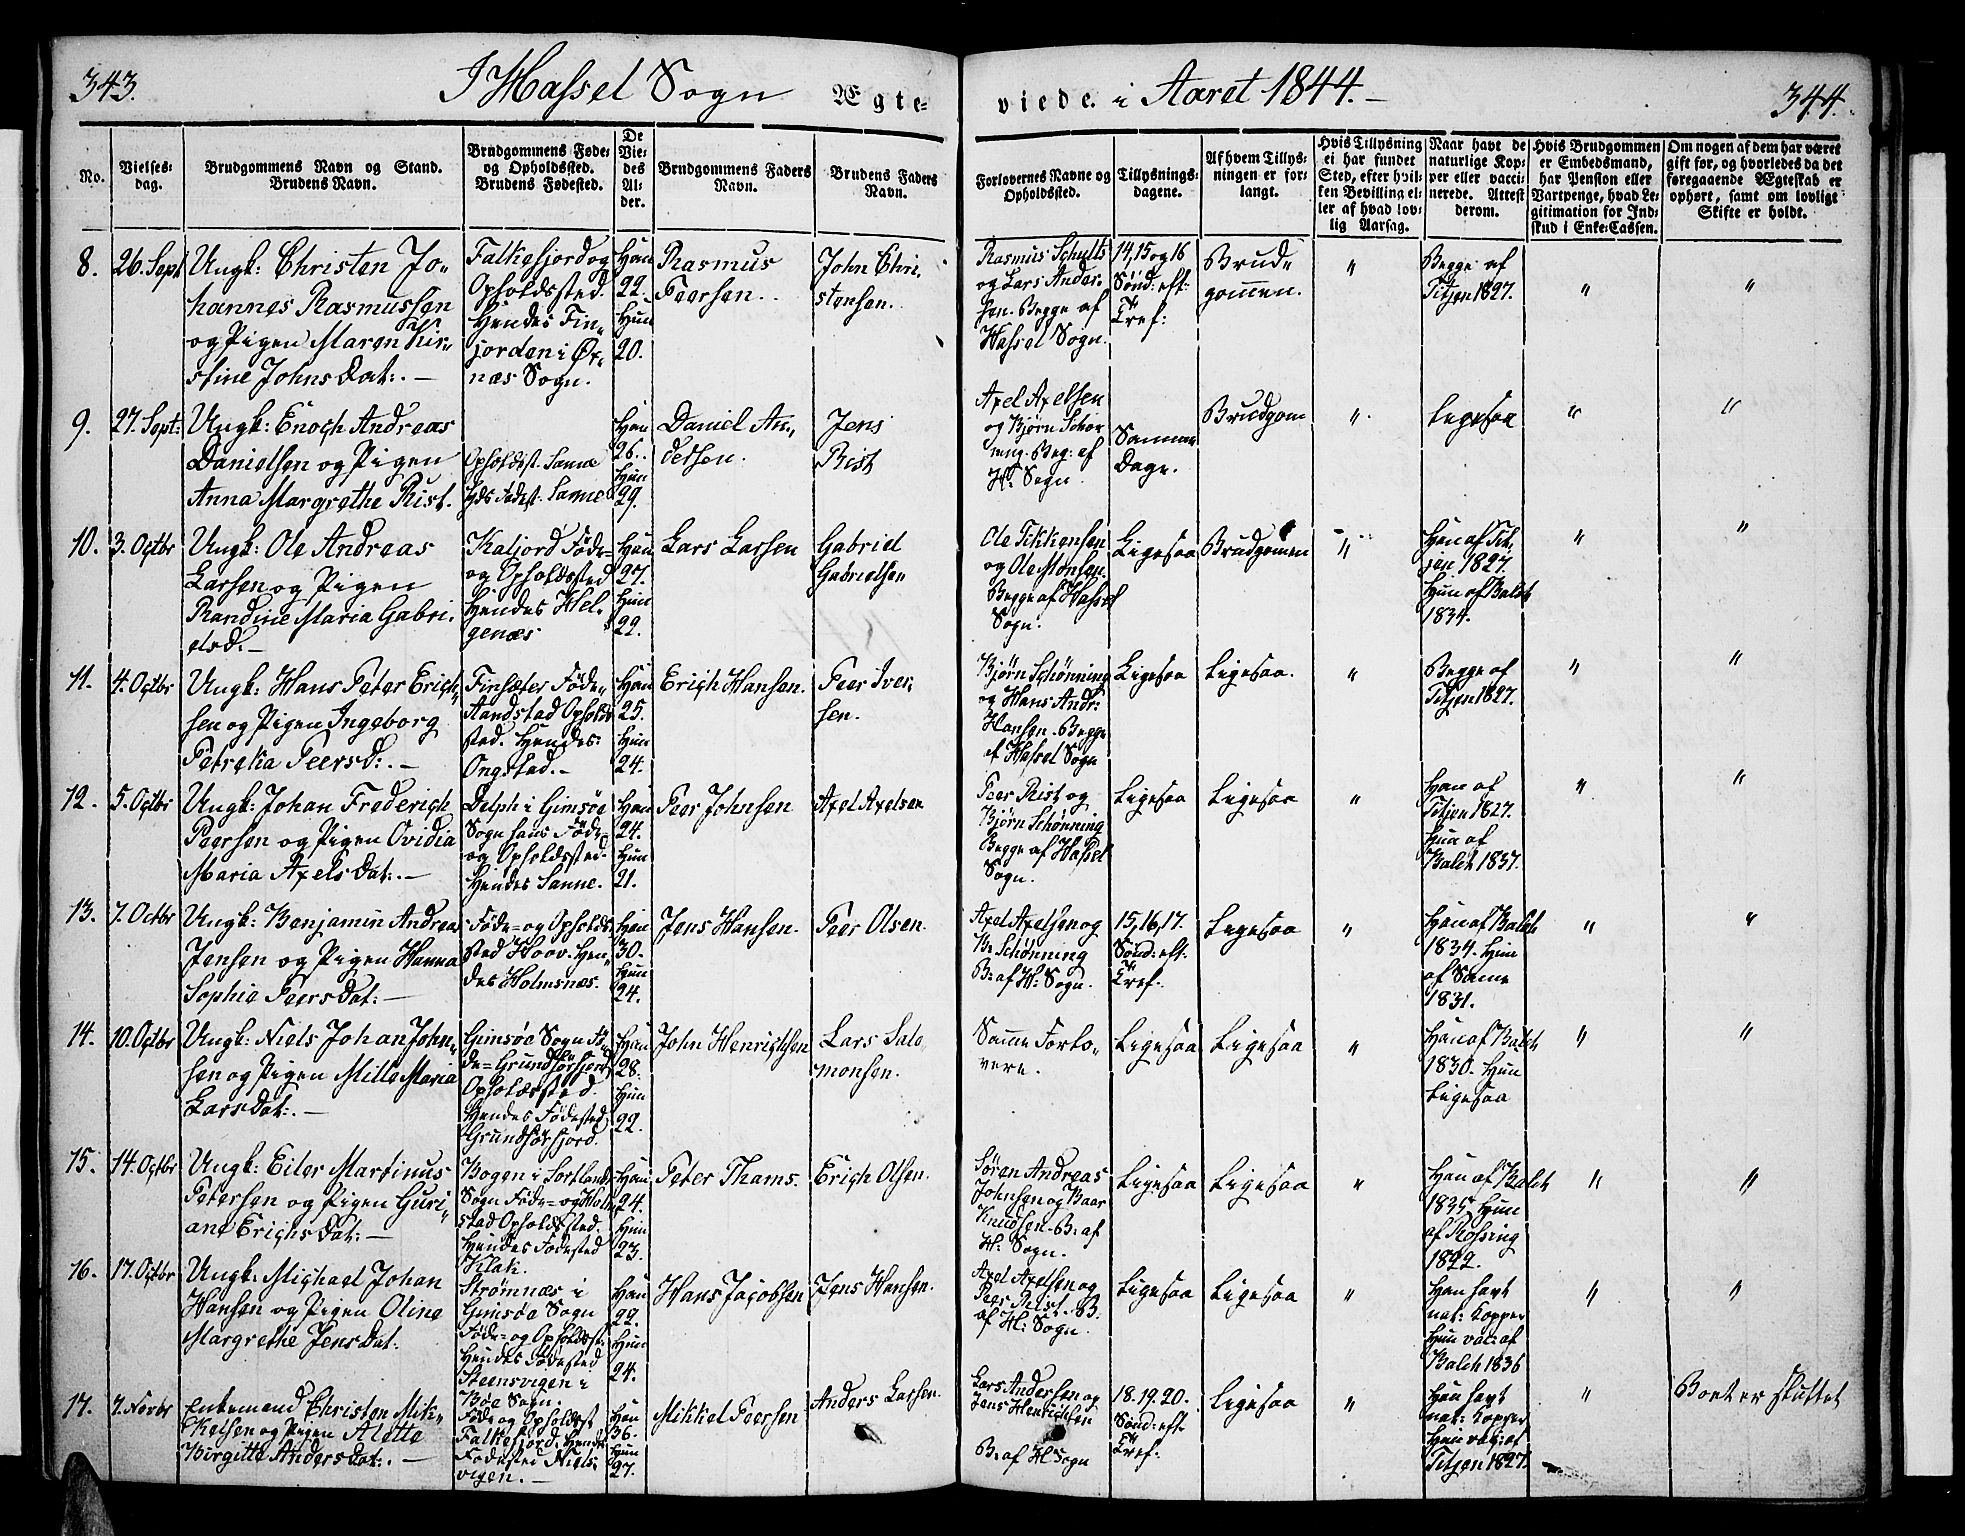 343.
I Hassel Sogn Ægte-
viede. i Aaret 1844.-
344.
No.
Vielses-
dag.
Brudgommens Navn og Stand.
Brudens Navn.
Brudgommens Føde-
og Opholdssted.
Brudens Fødested.
De
Vie-
des
Al-
der.
Brudgommens Faders
Navn.
Brudens Faders
Navn.
Forlovernes Navne og
Opholdssted.
Tillysnings-
dagene.
Af hvem Tillys-
ningen er for-
langt.
Hvis Tillysning
ei har fundet
Sted, efter hvil-
ken Bevilling el-
ler af hvad lov-
lig Aarsag.
Naar havt de
naturlige Kop-
per eller vacci-
nerede. Attest
derom.
Hvis Brudgommen
er Embedsmand,
har Pension eller
Vartpenge, hvad Le-
gitimation for Ind-
skud i Enke-Cassen.
Om nogen af dem har været
gift før, og hvorledes da det
foregaaende Ægteskab er
ophørt, samt om lovligt
Skifte er holdt.
8.
26. Sept
Ungk: Christen Jo-
hannes Rasmussen
og Pigen Maren Kir-
stine Johns Dat:.-
Falkefjord og
Opholdssted.
Hendes Fin-
jorden i Øx-
næs Sogn.
Han
22.
Hun
20.
Rasmus
Peersen.
John Chri-
stensen.
Rasmus Schults
og Lars Ander-
sen. Begge af
Hassel Sogn.
14, 15 og 16
Sønd: eft:
Tref:
Brud-
gommen.
"
Begge af
Titjen 1827.
"
"
9.
27. Sept:
Ungk: Enoch Andreas
Danielsen og Pigen
Anna Margrethe Rist.
Opholdst. Sanne
Hds Fødest. Sanne
Han
26.
Hun
29.
Daniel An-
dersen.
Jens
Rist
Axel Axelsen
og Bjørn Schøn-
ning. Beg: af
H: Sogn.
Samme
Dage.
Brudgom
"
Ligesaa
"
"
10.
3. Octbr
Ungk: Ole Andreas
Larsen og Pigen
Randine Maria Gabri-
elsd:.-
Kaljord Føde-
og Opholdssted
Hendes Hel-
genæs
Han
27.
Hun
22.
Lars Larsen
Gabriel
Gabrielsen
Ole Tikkensen
og Ole Monsen.
Begge af Hassel
Sogn.
Ligesaa
Brudgommen
"
Han af Tit-
jen 1827.
Hun af Balch
1834.
"
"
11.
4. Octbr
Ungk: Hans Peter Erich-
sen og Pigen Ingeborg
Petrika Peersd:.-
Finsæter Føde-
Sandstad Opholds-
sted. Hendes
Ongstad.-
Han
25.
Hun
24.
Erich Hansen.
Peer Iver-
sen.
Bjørn Schønning
og Hans Andr:
Hansen. Begge
af Hassel Sogn
Ligesaa
Ligesaa.
"
Begge af
Titjen 1827.
"
"
12.
5. Octbr
Ungk: Johan Frederich
Peersen og Pigen Ovidia
Maria Axels Dat:.-
Delph i Gimsøe
Sogn hans Føde-
og Opholdssted.
Hendes Sanne.
Han
24.
Hun
21.
Peer Johnsen
Axel Axelsen
Peer Rist og
Bjørn Schønning
Begge af Hassel
Sogn.
Ligesaa
Ligesaa
"
Han af
Titjen 1827.
Hun af
Balch 1837.
"
"
13.
7. Octbr
Ungk: Benjamin Andreas
Jensen og Pigen Hanna
Sophia Peers Dat:.-
Føde- og Opholds-
sted Hoov. Hen-
des Holmsnæs.
Han
30.
Hun
24.
Jens Hansen.
Peer Olsen.
Axel Axelsen og
B. Schønning
B: af H: Sogn.
15, 16, 17.
Sønd: eft.
Tref.
Ligesaa
"
Han af Balch
1834. Hun
af Samme
1831.
"
"
14.
10. Octbr
Ungk: Niels Johan John-
sen og Pigen Mille Maria
Lars Dat:.-
Gimsøe Sogn Fø-
de- Grundførfjord
Opholdssted.
Hendes Fødested
Grundførfjord.
Han
28.
Hun
22.
John Henrichsen
Lars Salo-
monsen.
Samme Forlo-
vere.
Ligesaa
Ligesaa
"
Han af Balch
1830. Hun
Ligesaa
"
"
15.
14. Octbr
Ungk: Eiler Martinus
Petersen og Pigen Guri-
ane Erichs Dat:.-
Bogen i Sortlands
Sogn Føde- og Holm-
stad Opholdssted.
Hendes Fødested
Klak.
Han
24.
Hun
23.
Peter Thams.
Erich Olsen.
Søren Andreas
Johnsen og Baar
Knudsen. B: af
H: Sogn.
Ligesaa
Ligesaa
"
Han af Balch
1835. Hun
af Rosing
1822.
"
"
16.
17. Octbr
Ungk: Michael Johan
Hansen og Pigen Oline
Margrethe Jens Dat:.
Strømnæs i
Gimsøe Sogn
Føde- og Opholdsst:
Hendes Fødested
Steensvigen i
Bøe Sogn.
Han
22.
Hun
24.
Hans Jacobsen
Jens Hansen.
Axel Axelsen og
Peer B.
af H: Sogn.
Ligesaa
Ligesaa
"
Han havt
nat: Kopper
Hun vac: af
Balch 1836
"
"
17.
7. Novbr
Enkemand Christen Mik-
kelsen og Pigen Alette
Birgitte Anders Dat:.-
Føde og Opholdsst
Falkefjord. Hendes
Fødested Niels-
vigen.-
Han
36.
Hun
27.
Mikkel Peersen
Anders Larsen.
Lars Andersen og
Jens Henrichsen
B: af H: Sogn
18. 19. 20.
Sønd: eft.
Tref.
Ligesaa
"
Han havt
nat: Kopper
Hun vac: af
Titjen 1827.
"
Boet er skiftet